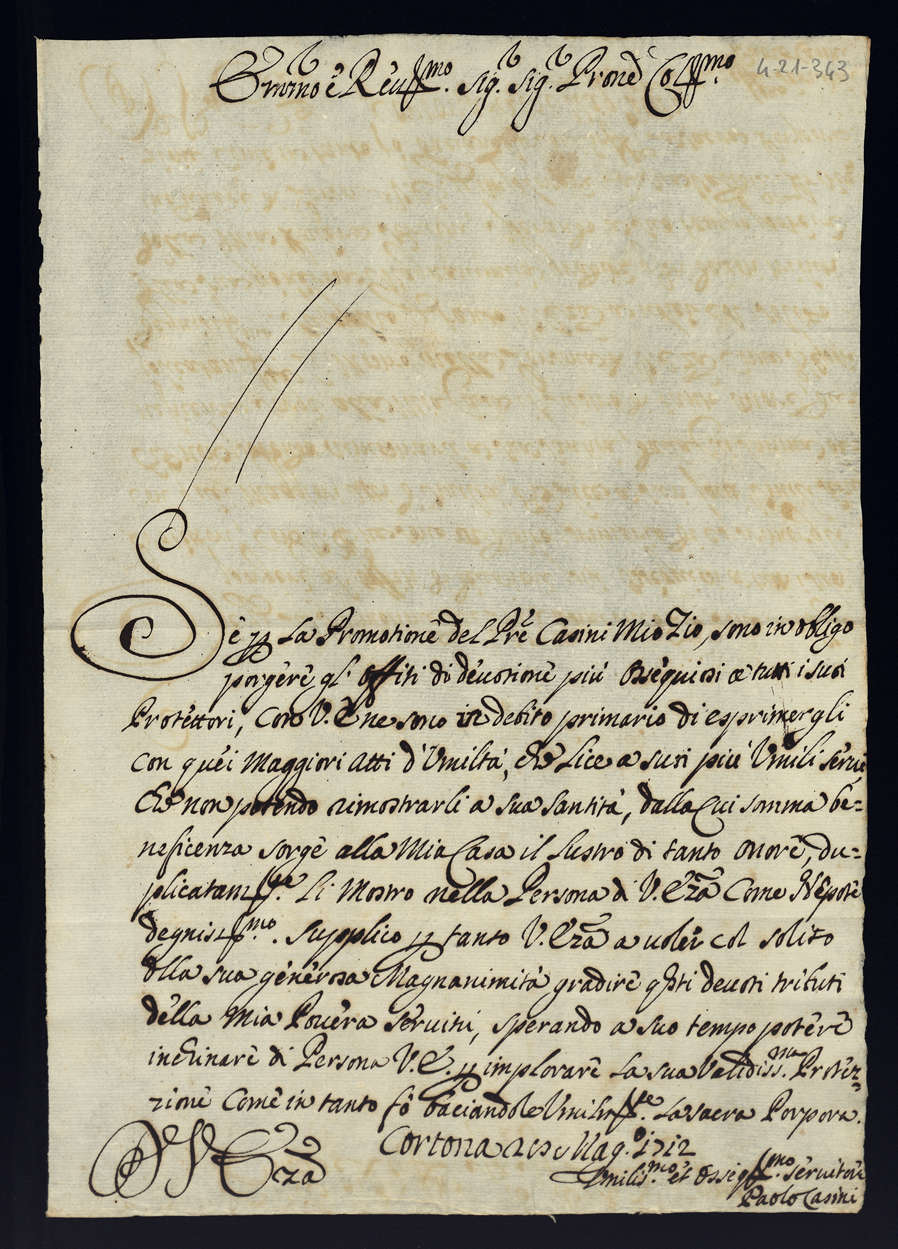 Em̃no è Rèu.mo Sig.r Sig.r Pronè Col.mo
4-21-343
Sè p La Promotionè del Prè Casini Mio Zio, sono in obligo
porgèrè gl' offiti di dèuotionè più ossèquiosi à tutti i suoi
Protèttori, con V. È. ne sono in debito primario di esprimergli
con quèi Maggiori Atti d'Vmiltà, chè Lice a suoi più Vmili sèrui
Chè non potendo rimostrarli a sua santità, dalla Cui somma bè=
neficenza sorgè alla Mia Casa il Lustro di tanto onorè, du=
plicatam.te Li Mostro nella Persona di V. Ezã Come Nèpotè
degniss.mo. Supplico p tanto V. Ezã a uolèr col solito
dlla sua gènèrosa Magnanimità gradirè qsti deuoti tributi
dèlla Mia Pouèra sèruitù, spèrando a suo tempo potèrè
inchinarè di Persona V. E. p implorarè La sua Validiss.ma Protèz=
zionè Comè in tanto fò baciandole Vmilm.te La sacra Porpora.
Cortona Mag.o 1712
D V Ezã
Vmilis.mo èt osseq.mo sèruitorè
Paolo Casini